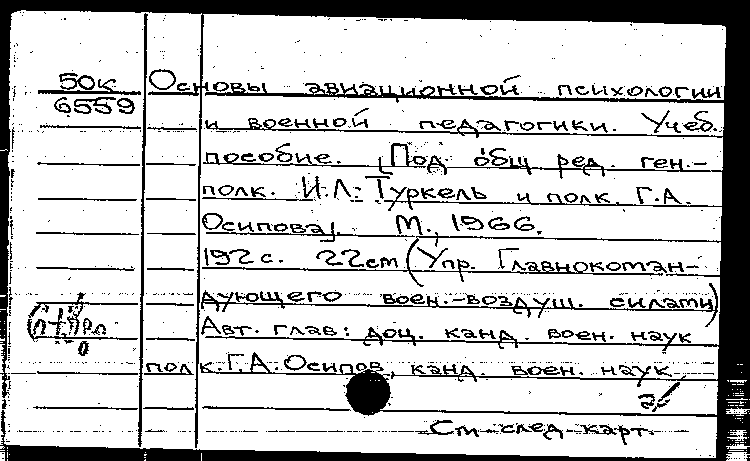 50к Основы авиационной психологии
6559
и военной педагогики. Учеб.
пособие. [Под общ. ред. ген.-
полк. И.Л. Туркель и полк. Г.А.
Осипова]. М., 1966.
192 с. 22 см (Упр. Главнокоман-
дующего воен.-воздуш. силами)
Авт. глав: доц. канд. воен. наук
полк. Г.А. Осипов, канд. воен. наук
См. след. карт.